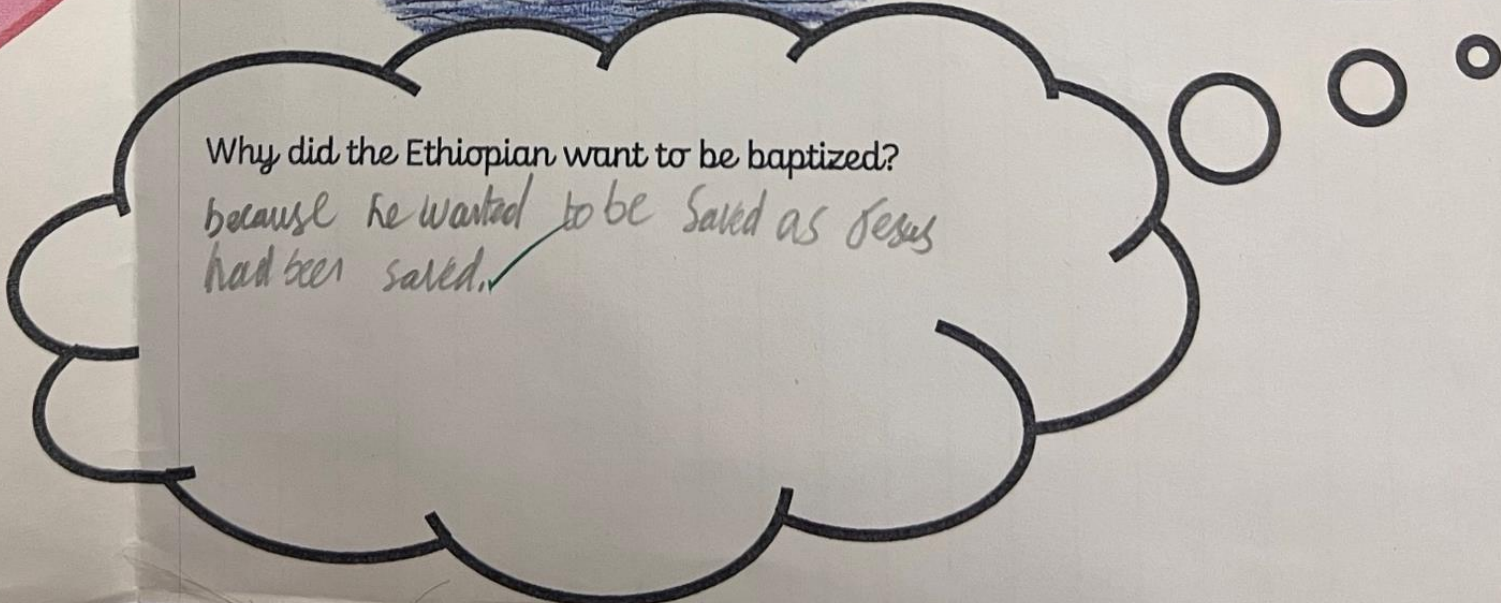 Why did the Ethiopian want to be baptized?
because he wanted to be saved as Jesus
had been saved.